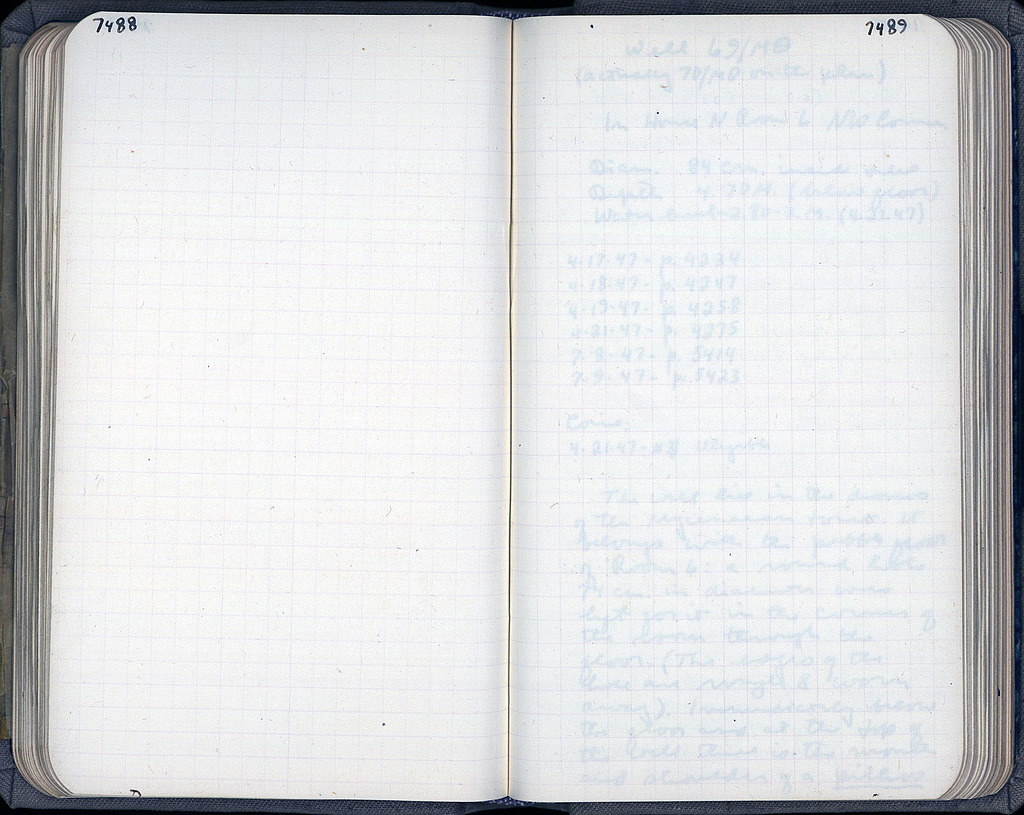 7488
7489
Well 69/MΘ
(actually 70/MΘ on the plan)
In House N Room 6 NW Corner
Diam. 84 cm. inside
Depth 4.70 M. (below floor)
Water level 2.80 M. (4.21.47)
4.17.47- p. 4234
4.18.47- p. 4247
4.19.47- p. 4258
4.21.47- p. 4275
7.8.47- p. 5414
7.9.47- p. 5423
Coins.
4.21.47- illegible
The well lies in the dromos
of the Mycenaean tomb. It
belongs with the pebble floor
of Room 6: a round hole
74 cm. in diameter was
left for it in the corner of
the room through the
floor. (The edges of the
hole are rough & worn
away). Immediately below
the floor and at the top of
the well there is the mouth
and shoulder of a pithos